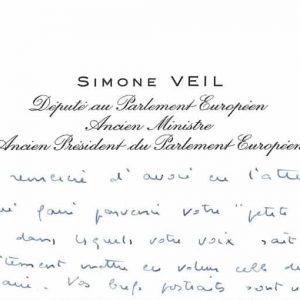 SIMONE VEIL
Député au Parlement Européen
Ancien Ministre
Ancien Président du Parlement Européen
remercié d'avoir eu l'atte
fait parvenir votre "petits
dans lesquels votre voix sait
mettre en valeur celle de
Vos brefs portraits sont